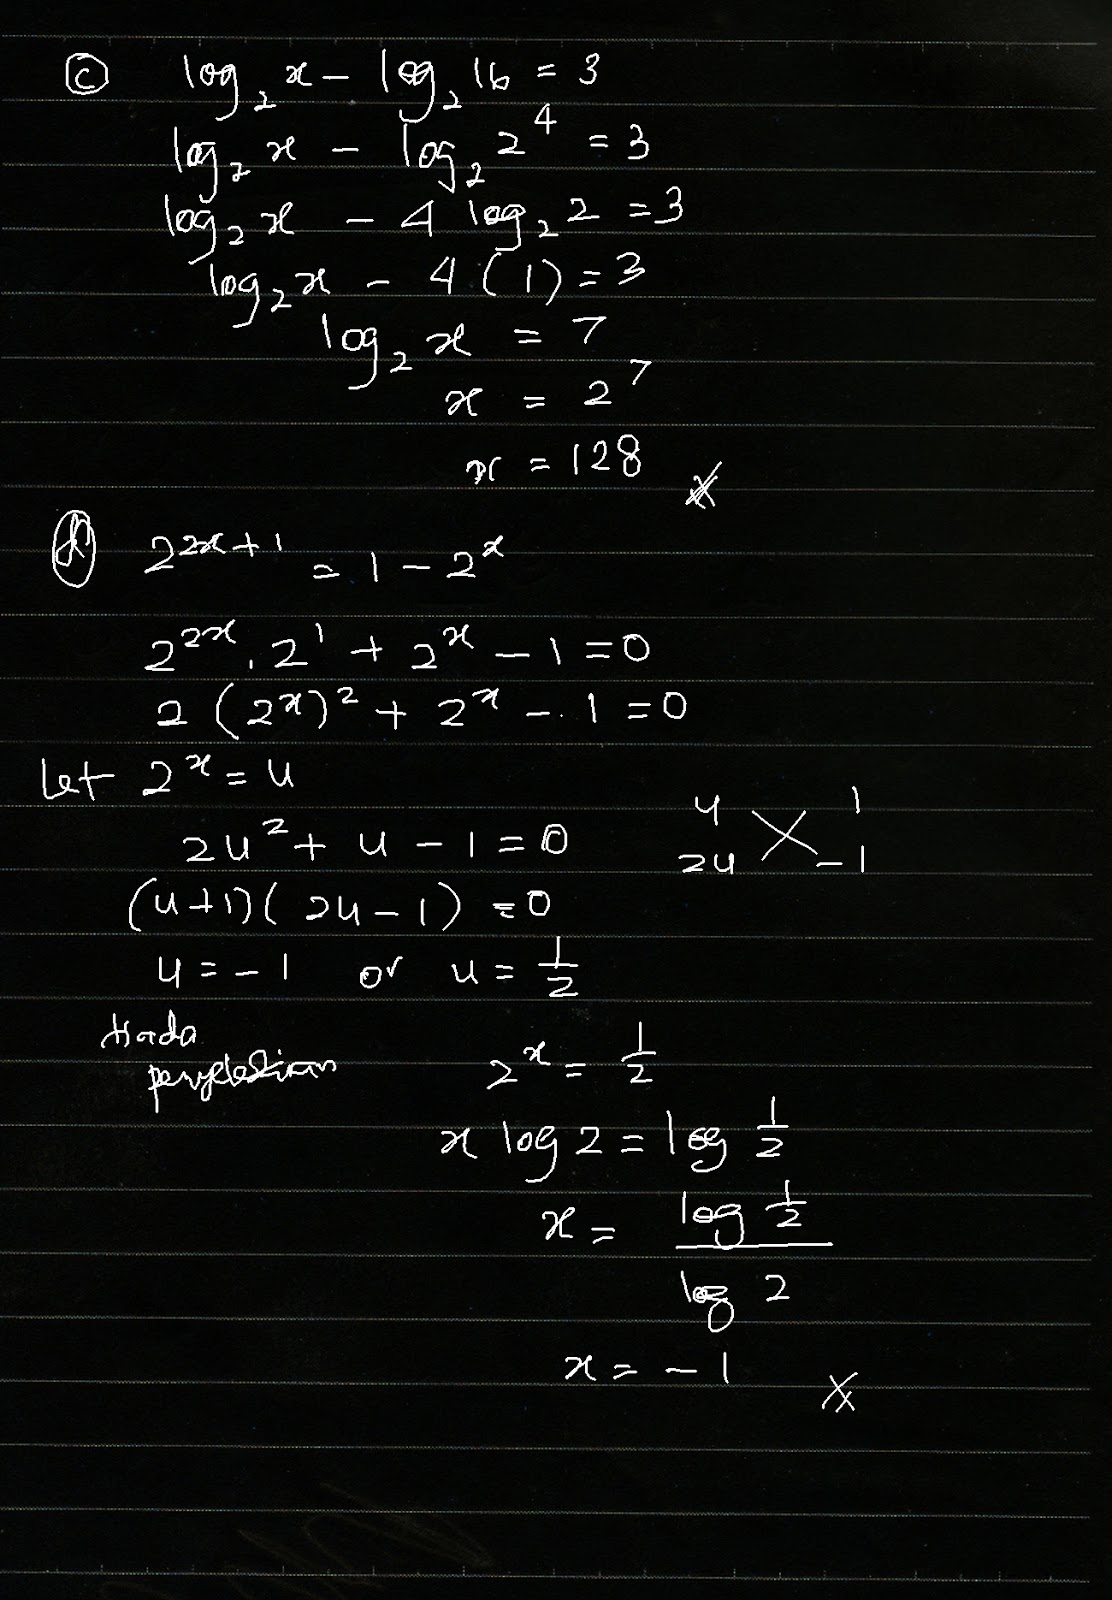 ⓒ log₂ x − log₂ 16 = 3
log₂ x − log₂ 2⁴ = 3
log₂ x − 4 log₂ 2 = 3
log₂ x − 4 (1) = 3
log₂ x = 7
x = 2⁷
x = 128
2²ˣ⁺¹ = 1 − 2ˣ
2²ˣ . 2¹ + 2ˣ − 1 = 0
2 (2ˣ)² + 2ˣ − 1 = 0
Let 2ˣ = u
2u² + u − 1 = 0
u 1
2u −1
(u+1)(2u−1) = 0
u = −1 or u = 1/2
tiada
penyelesaian
2ˣ = 1/2
x log 2 = log 1/2
x = log 1/2 / log 2
x = −1